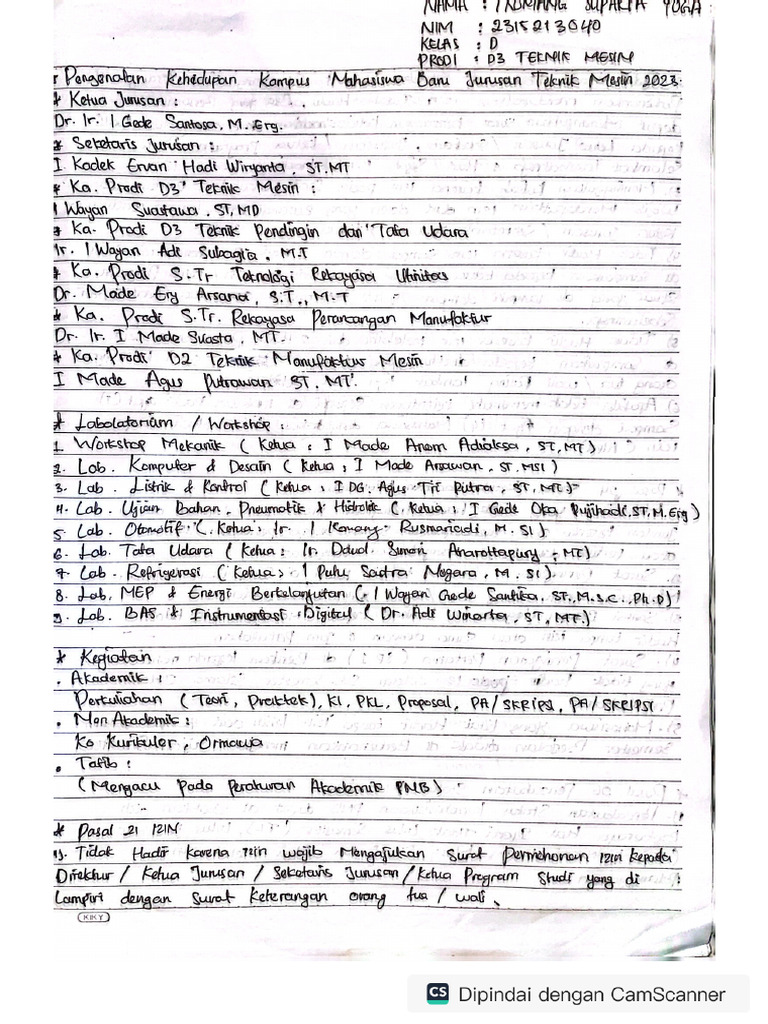 NAMA : I KOMANG SUPARTA YOGA
NIM : 2315213040
KELAS : D
PRODI : D3 TEKNIK MESIN
Pengenalan Kehedupan Kampus Mahasiswa Baru Jurusan Teknik Mesin 2023.
* Ketua Jurusan :
Dr. Ir. I Gede Santosa, M. Erg.
* Seketaris Jurusan :
I. Kadek Ervan Hadi Wiryanta, ST.MT
* Ka. Prodi D3 Teknik Mesin :
I Wayan Suastawa, ST, MD
* Ka. Prodi D3 Teknik Pendingin dan Tata Udara
Ir. I Wayan Adi Subagia, M.T
* Ka. Prodi S.Tr Teknologi Rekayasa Utilitas
Dr. Made Ery Arsana, S.T., M.T
* Ka. Prodi S.Tr. Rekayasa Perancangan Manufaktur
Dr. Ir. I Made Suasta, MT.
* Ka. Prodi D2 Teknik Manufaktur Mesin
I Made Agus Putrawan ST. MT.
* Labolatorium / Workshop :
1. Workshop Mekanik ( Ketua : I Made Anom Adiaksa, ST, MT )
2. Lab. Komputer & Desain ( Ketua : I Made Arsawan, ST. MSI )
3. Lab. Listrik & Kontrol ( Ketua : I DG. Agus Tri Putra, ST, MT )
4. Lab. Ujian Bahan, Pneumatik & Hidrolik ( Ketua : I Gede Oka Pujihadi, ST, M. Erg )
5. Lab. Otomotif ( Ketua : Ir. I Komang Rusmariadi, M. SI )
6. Lab. Tata Udara ( Ketua : Ir. Daud Simon Anarottapury, MT )
7. Lab. Refrigerasi ( Ketua : I Putu Sastra Negara, M. SI )
8. Lab. MEP & Energi Berkelanjutan ( I Wayan Gede Santika, ST., M.S.C., Ph.D )
9. Lab. BAS & Instrumentasi Digital ( Dr. Adi Winarta, ST, MT. )
* Kegiatan
. Akademik :
Perkuliahan ( Teori, Praktek ), KI, PKL, Proposal, PA/SKRIPSI, PA/SKRIPSI
. Non Akademik :
Ko Kurikuler, Ormawa
. Tatib :
( Mengacu Pada Peraturan Akademik PNB )
* Pasal 21 IZIN
1). Tidak Hadir Karena izin wajib Mengajukan Surat Permohonan izin kepada
Direktur / Ketua Jurusan / Seketaris Jurusan / Ketua Program Studi yang di
Lampiri dengan Surat Keterangan orang tua / wali.
KIKY
CS Dipindai dengan CamScanner